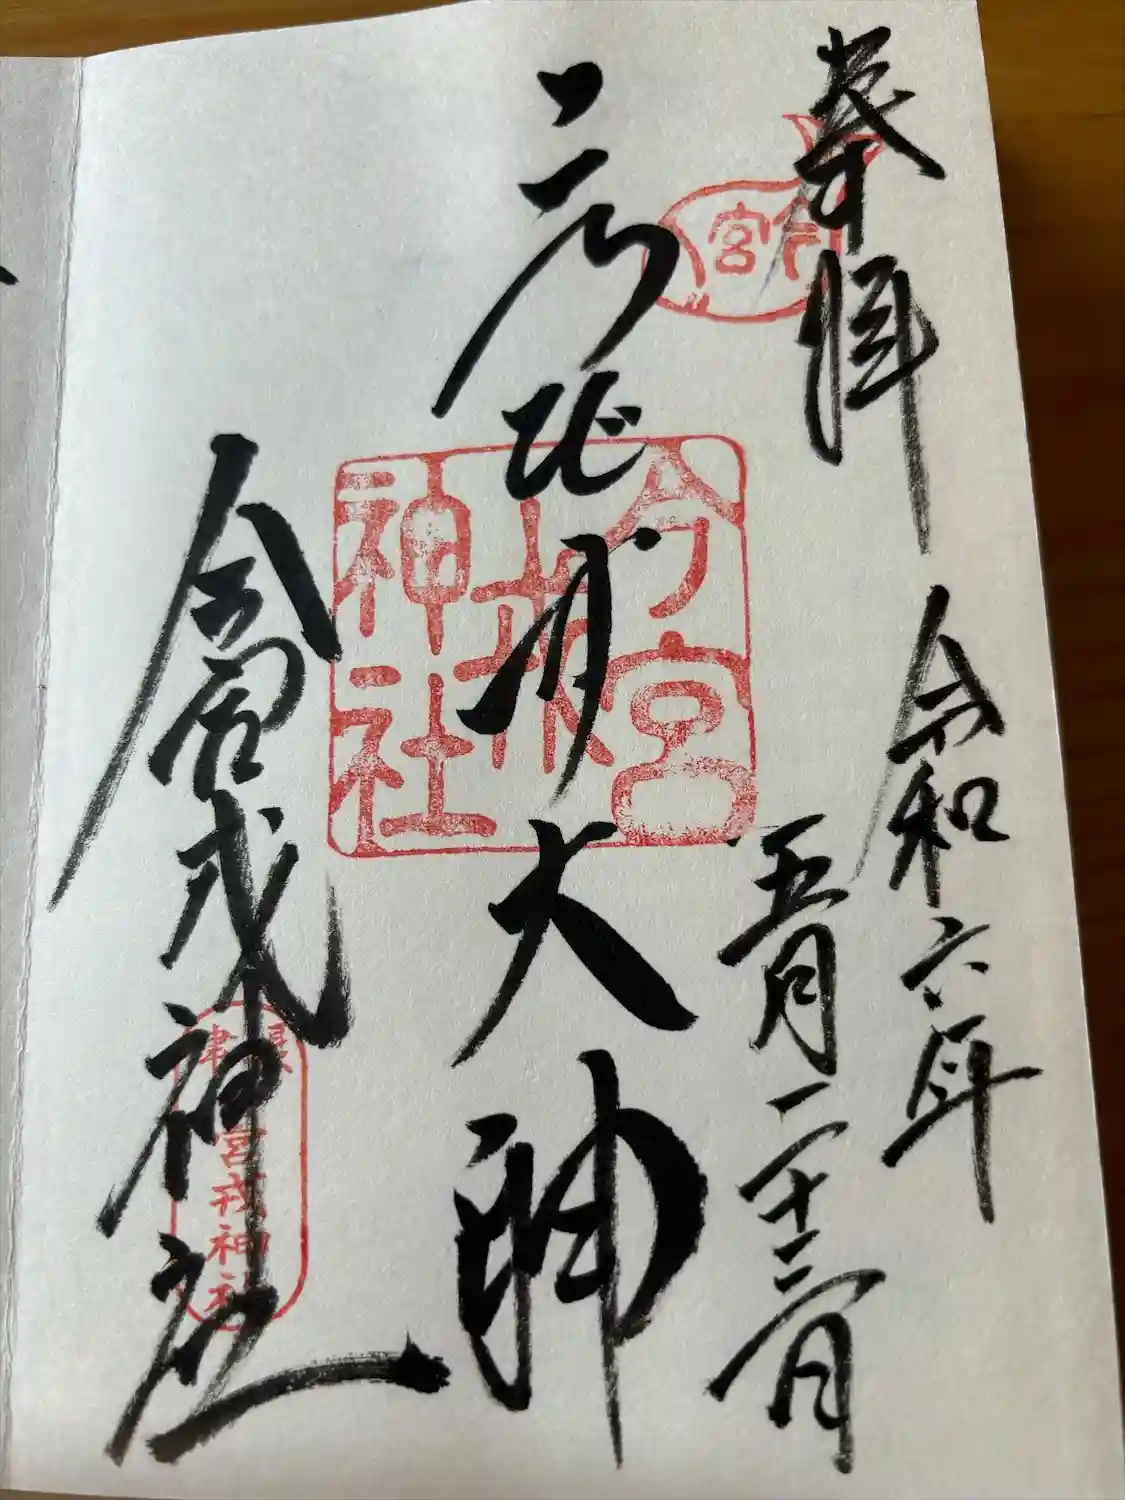 奉拝
令和六年
五月二十三日
えびす大神
今宮戎神社
今宮
神社
宮戎神社